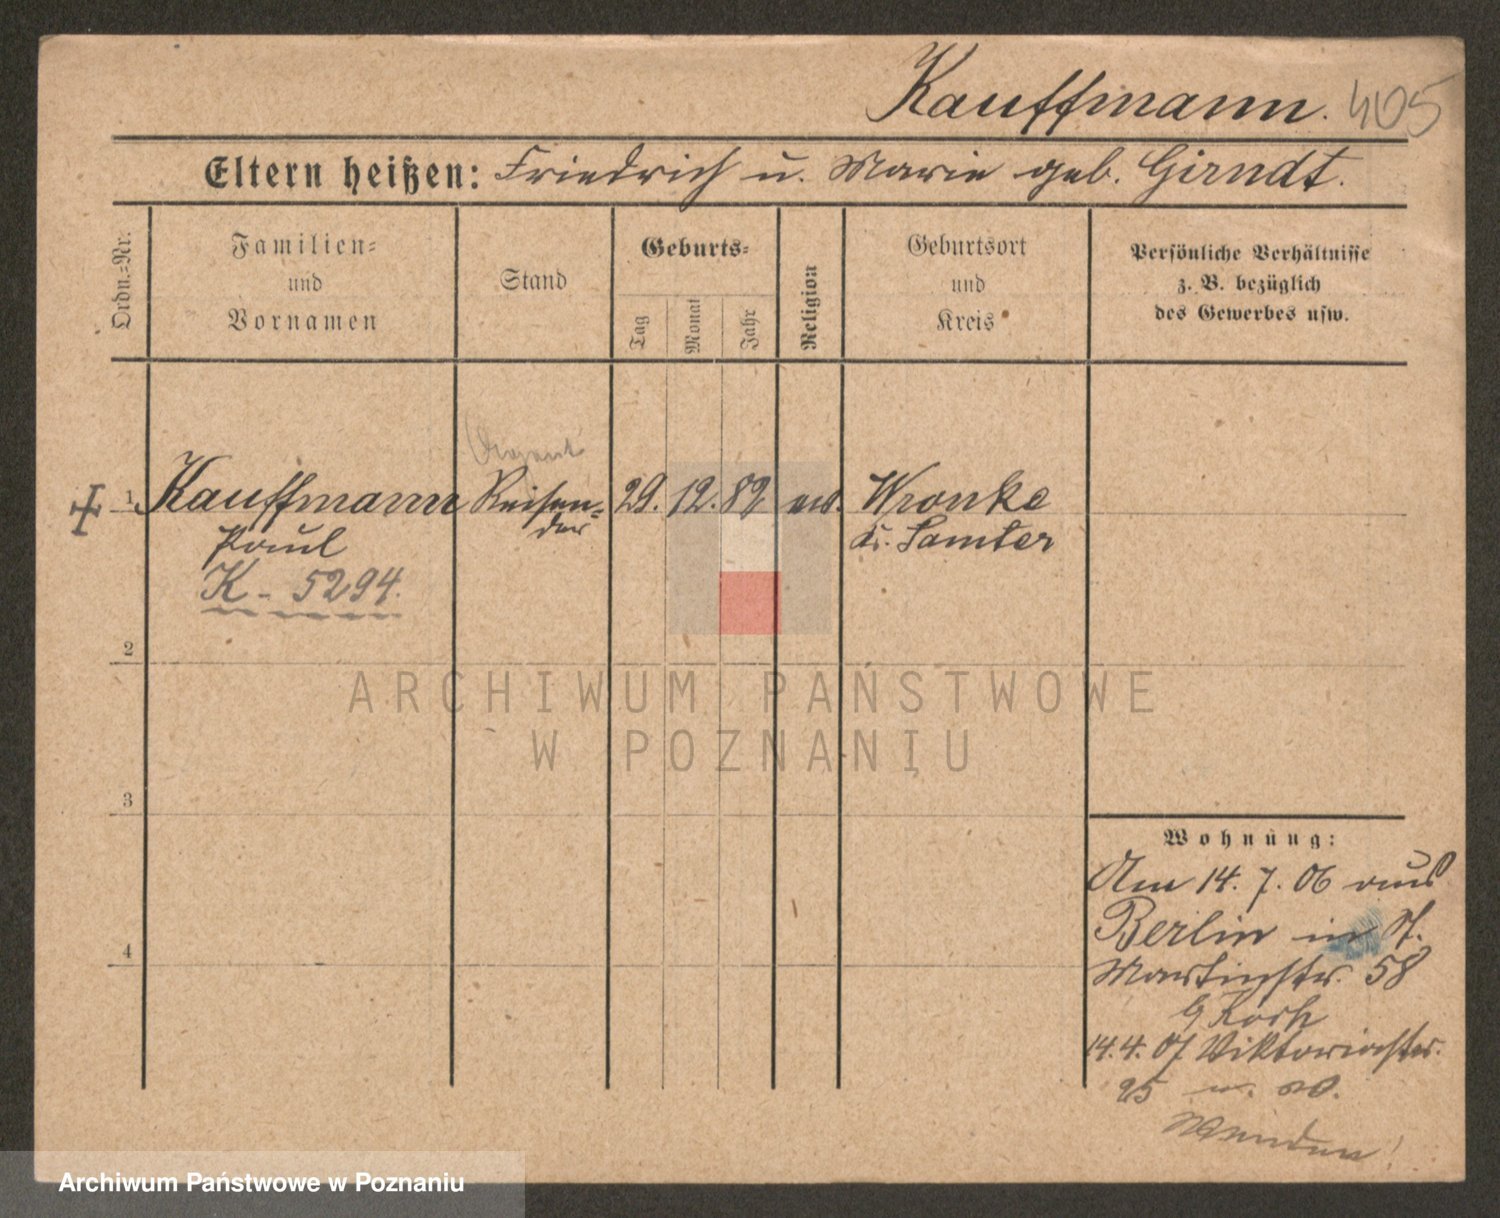 Kauffmann. 405
Eltern heißen: Friedrich u. Marie geb. Girndt.
Ordn.-Nr.
Familien-
und
Vornamen
Stand
Geburts-
Tag
Monat
Jahr
Religion
Geburtsort
und
Kreis
Persönliche Verhältnisse
z. B. bezüglich
des Gewerbes usw.
1 Kauffmann Reisen- 29. 12. 82 ev. Wronke
Paul der Kr. Samter
K - 5294.
2
ARCHIWUM PAŃSTWOWE
W POZNANIU
3
4
Wohnung:
Am 14. 7. 06 aus
Berlin in St.
Martinstr. 58
b/ Koch
14. 4. 07 Viktoriastr.
25
Wenden!
Archiwum Państwowe w Poznaniu